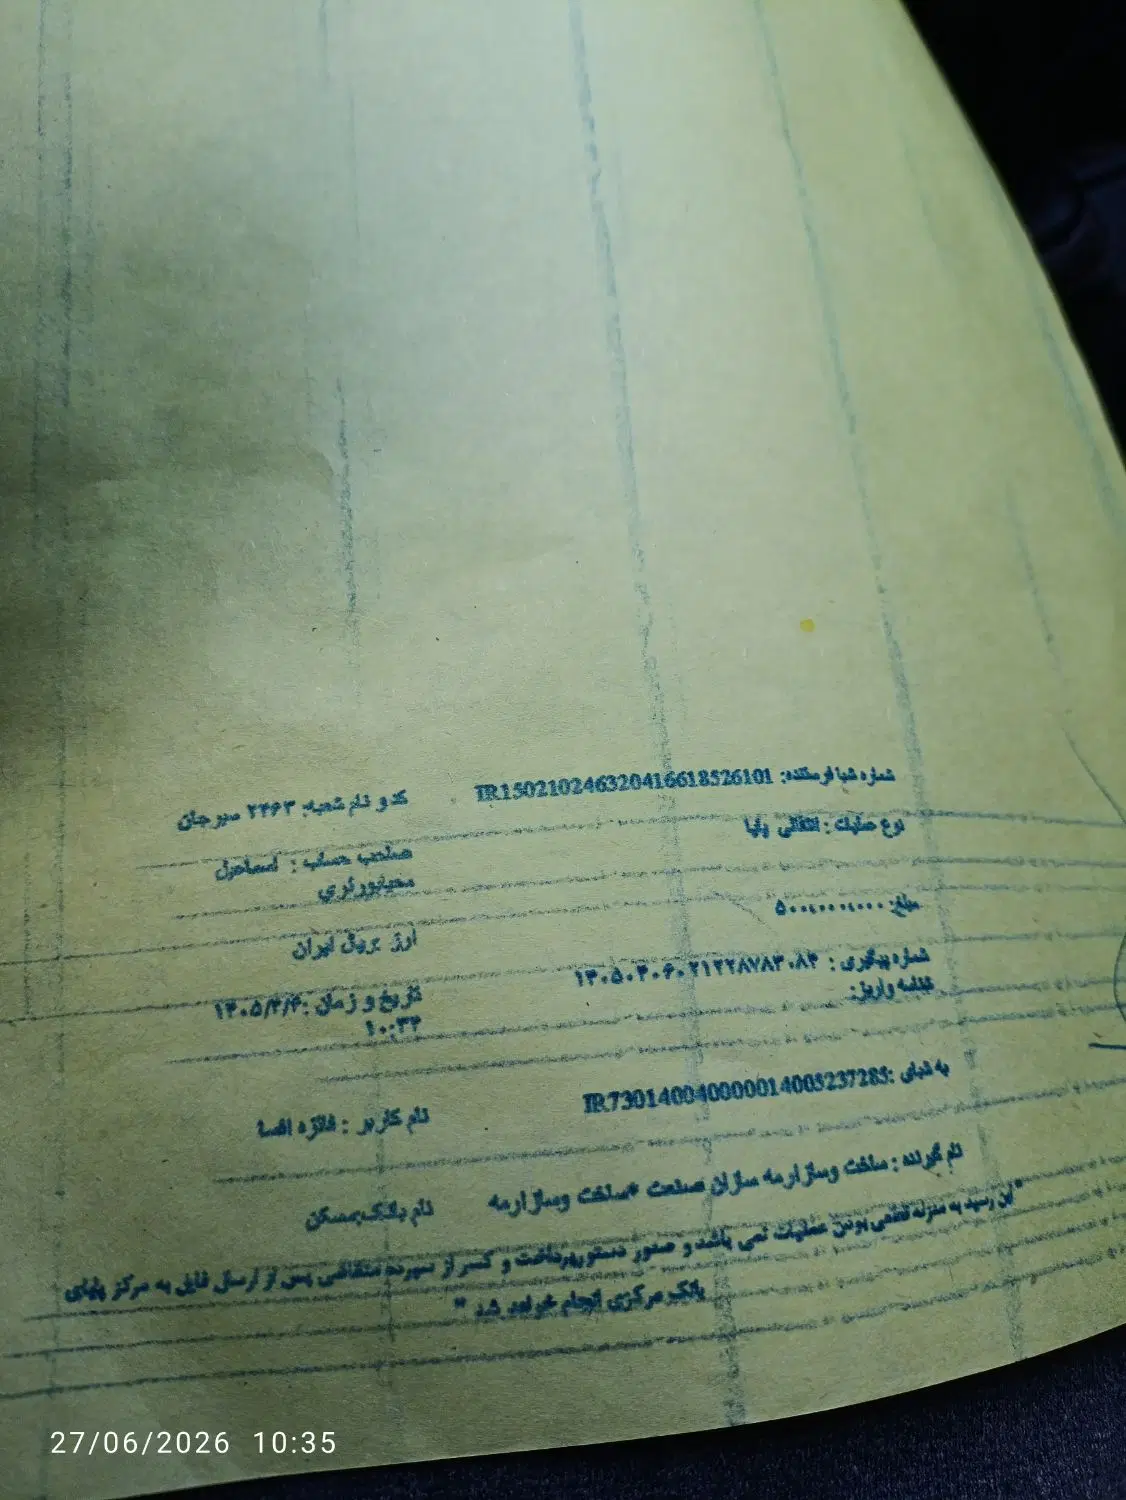 شماره شبا فرستنده: IR150210246320416618526101
کد و نام شعبه: ۲۴۶۳ سیرجان
نوع عملیات : انتقالی پایا
صاحب حساب : اسماعیل
مبلغ: ۵۰۰،۰۰۰،۰۰۰
ارز :ریال ایران
شماره پیگیری :
شناسه واریز:
تاریخ و زمان :۱۴۰۵/۴/۶
۱۰:۳۴
به شبای :IR730140040000014005237285
نام کاربر : فائزه افسا
نام گیرنده : ساخت وساز ارمه سازان صنعت *ساخت وساز ارمه
نام بانک:مسکن
"این رسید به منزله قطعی بودن عملیات نمی باشد و صدور دستورپرداخت و کسر از سپرده متقاضی پس از ارسال فایل به مرکز پایای
بانک مرکزی انجام خواهد شد "
27/06/2026 10:35